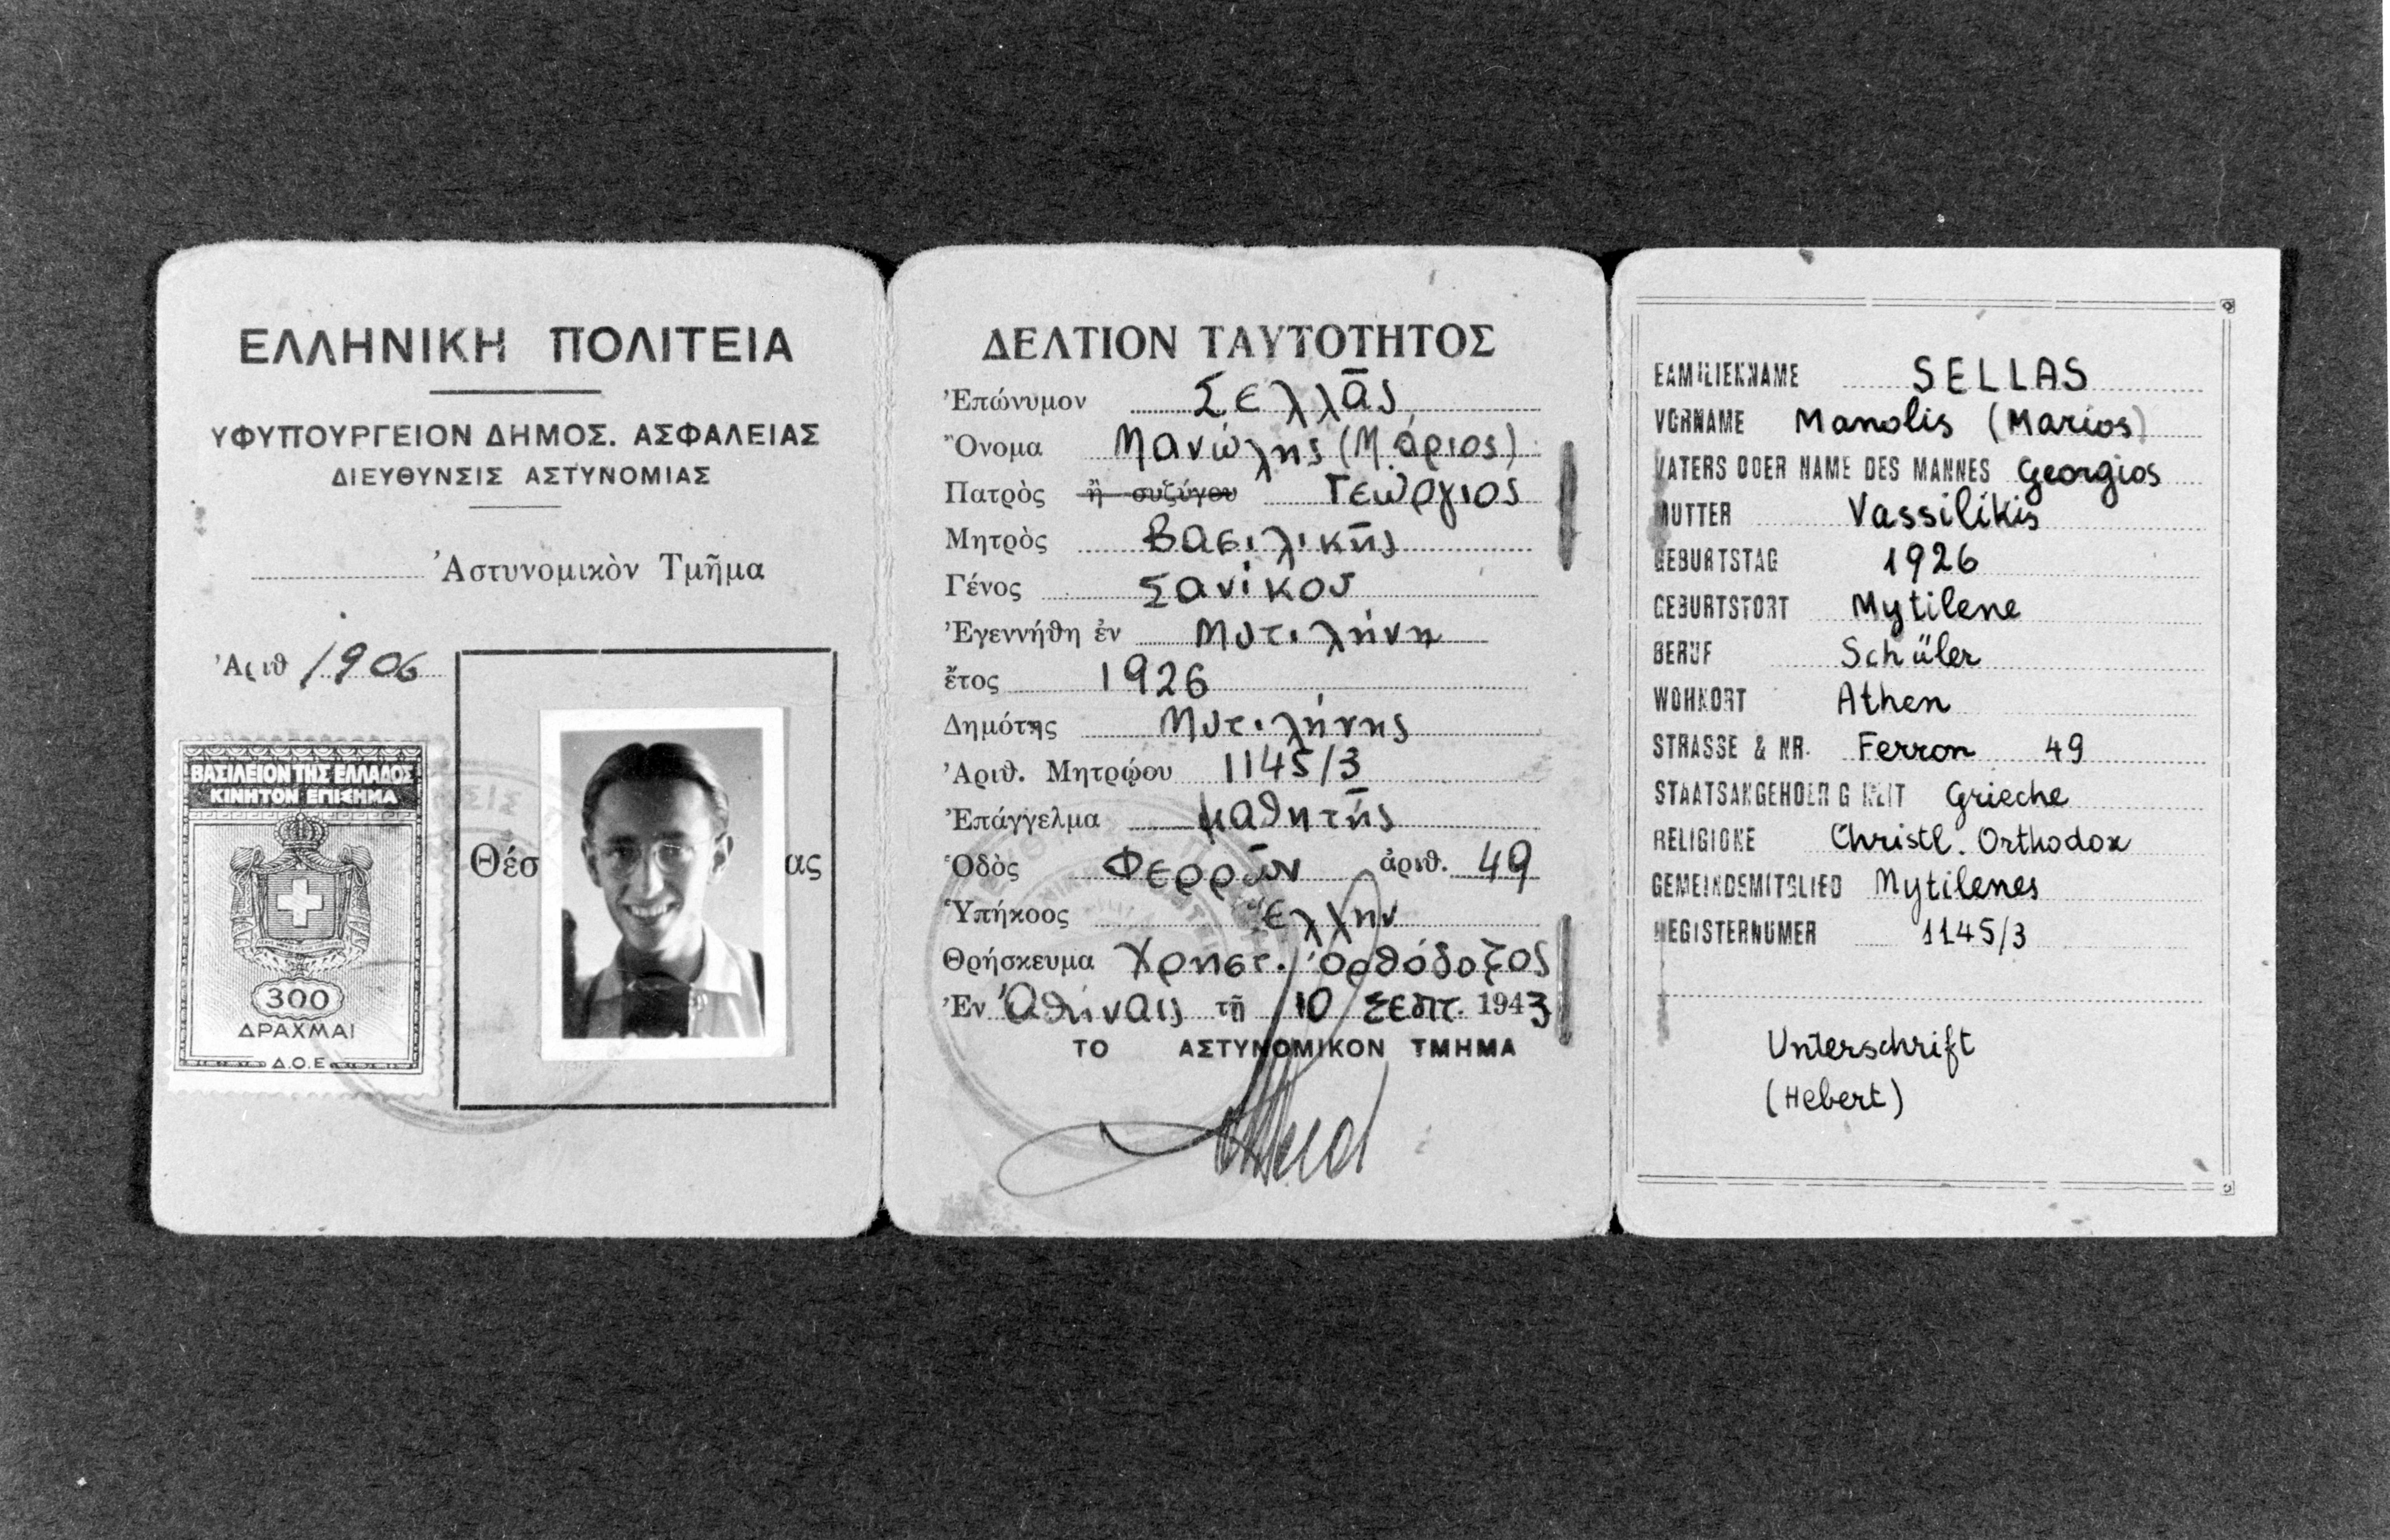 ΕΛΛΗΝΙΚΗ ΠΟΛΙΤΕΙΑ
ΥΦΥΠΟΥΡΓΕΙΟΝ ΔΗΜΟΣ. ΑΣΦΑΛΕΙΑΣ
ΔΙΕΥΘΥΝΣΙΣ ΑΣΤΥΝΟΜΙΑΣ
Ἀστυνομικὸν Τμῆμα
Ἀριθ 1906
ΒΑΣΙΛΕΙΟΝ ΤΗΣ ΕΛΛΑΔΟΣ
ΚΙΝΗΤΟΝ ΕΠΙΣΗΜΑ
300
ΔΡΑΧΜΑΙ
Δ.Ο.Ε.
Θέσ ας
ΔΕΛΤΙΟΝ ΤΑΥΤΟΤΗΤΟΣ
Ἐπώνυμον Σελλᾶς
Ὄνομα Μανώλης (Μάριος)
Πατρὸς ἢ συζύγου Γεώργιος
Μητρὸς Βασιλικῆς
Γένος Σανίκου
Ἐγεννήθη ἐν Μυτιλήνη
ἔτος 1926
Δημότης Μυτιλήνης
Ἀριθ. Μητρῴου 1145/3
Ἐπάγγελμα μαθητῆς
Ὁδὸς Φερρῶν ἀριθ. 49
Ὑπήκοος Ἕλλην
Θρήσκευμα Χρηστ. Ὀρθόδοξος
Ἐν Ἀθήναις τῇ 10 Σεπτ. 1943
ΤΟ ΑΣΤΥΝΟΜΙΚΟΝ ΤΜΗΜΑ
FAMILIENNAME SELLAS
VORNAME Manolis (Marios)
VATERS ODER NAME DES MANNES Georgios
MUTTER Vassilikis
GEBURTSTAG 1926
GEBURTSTORT Mytilene
BERUF Schüler
WOHNORT Athen
STRASSE & NR. Ferron 49
STAATSANGEHOERIGKEIT Grieche
RELIGIONE Christl. Orthodox
GEMEINDEMITGLIED Mytilenes
REGISTERNUMER 1145/3
Unterschrift
(Hebert)